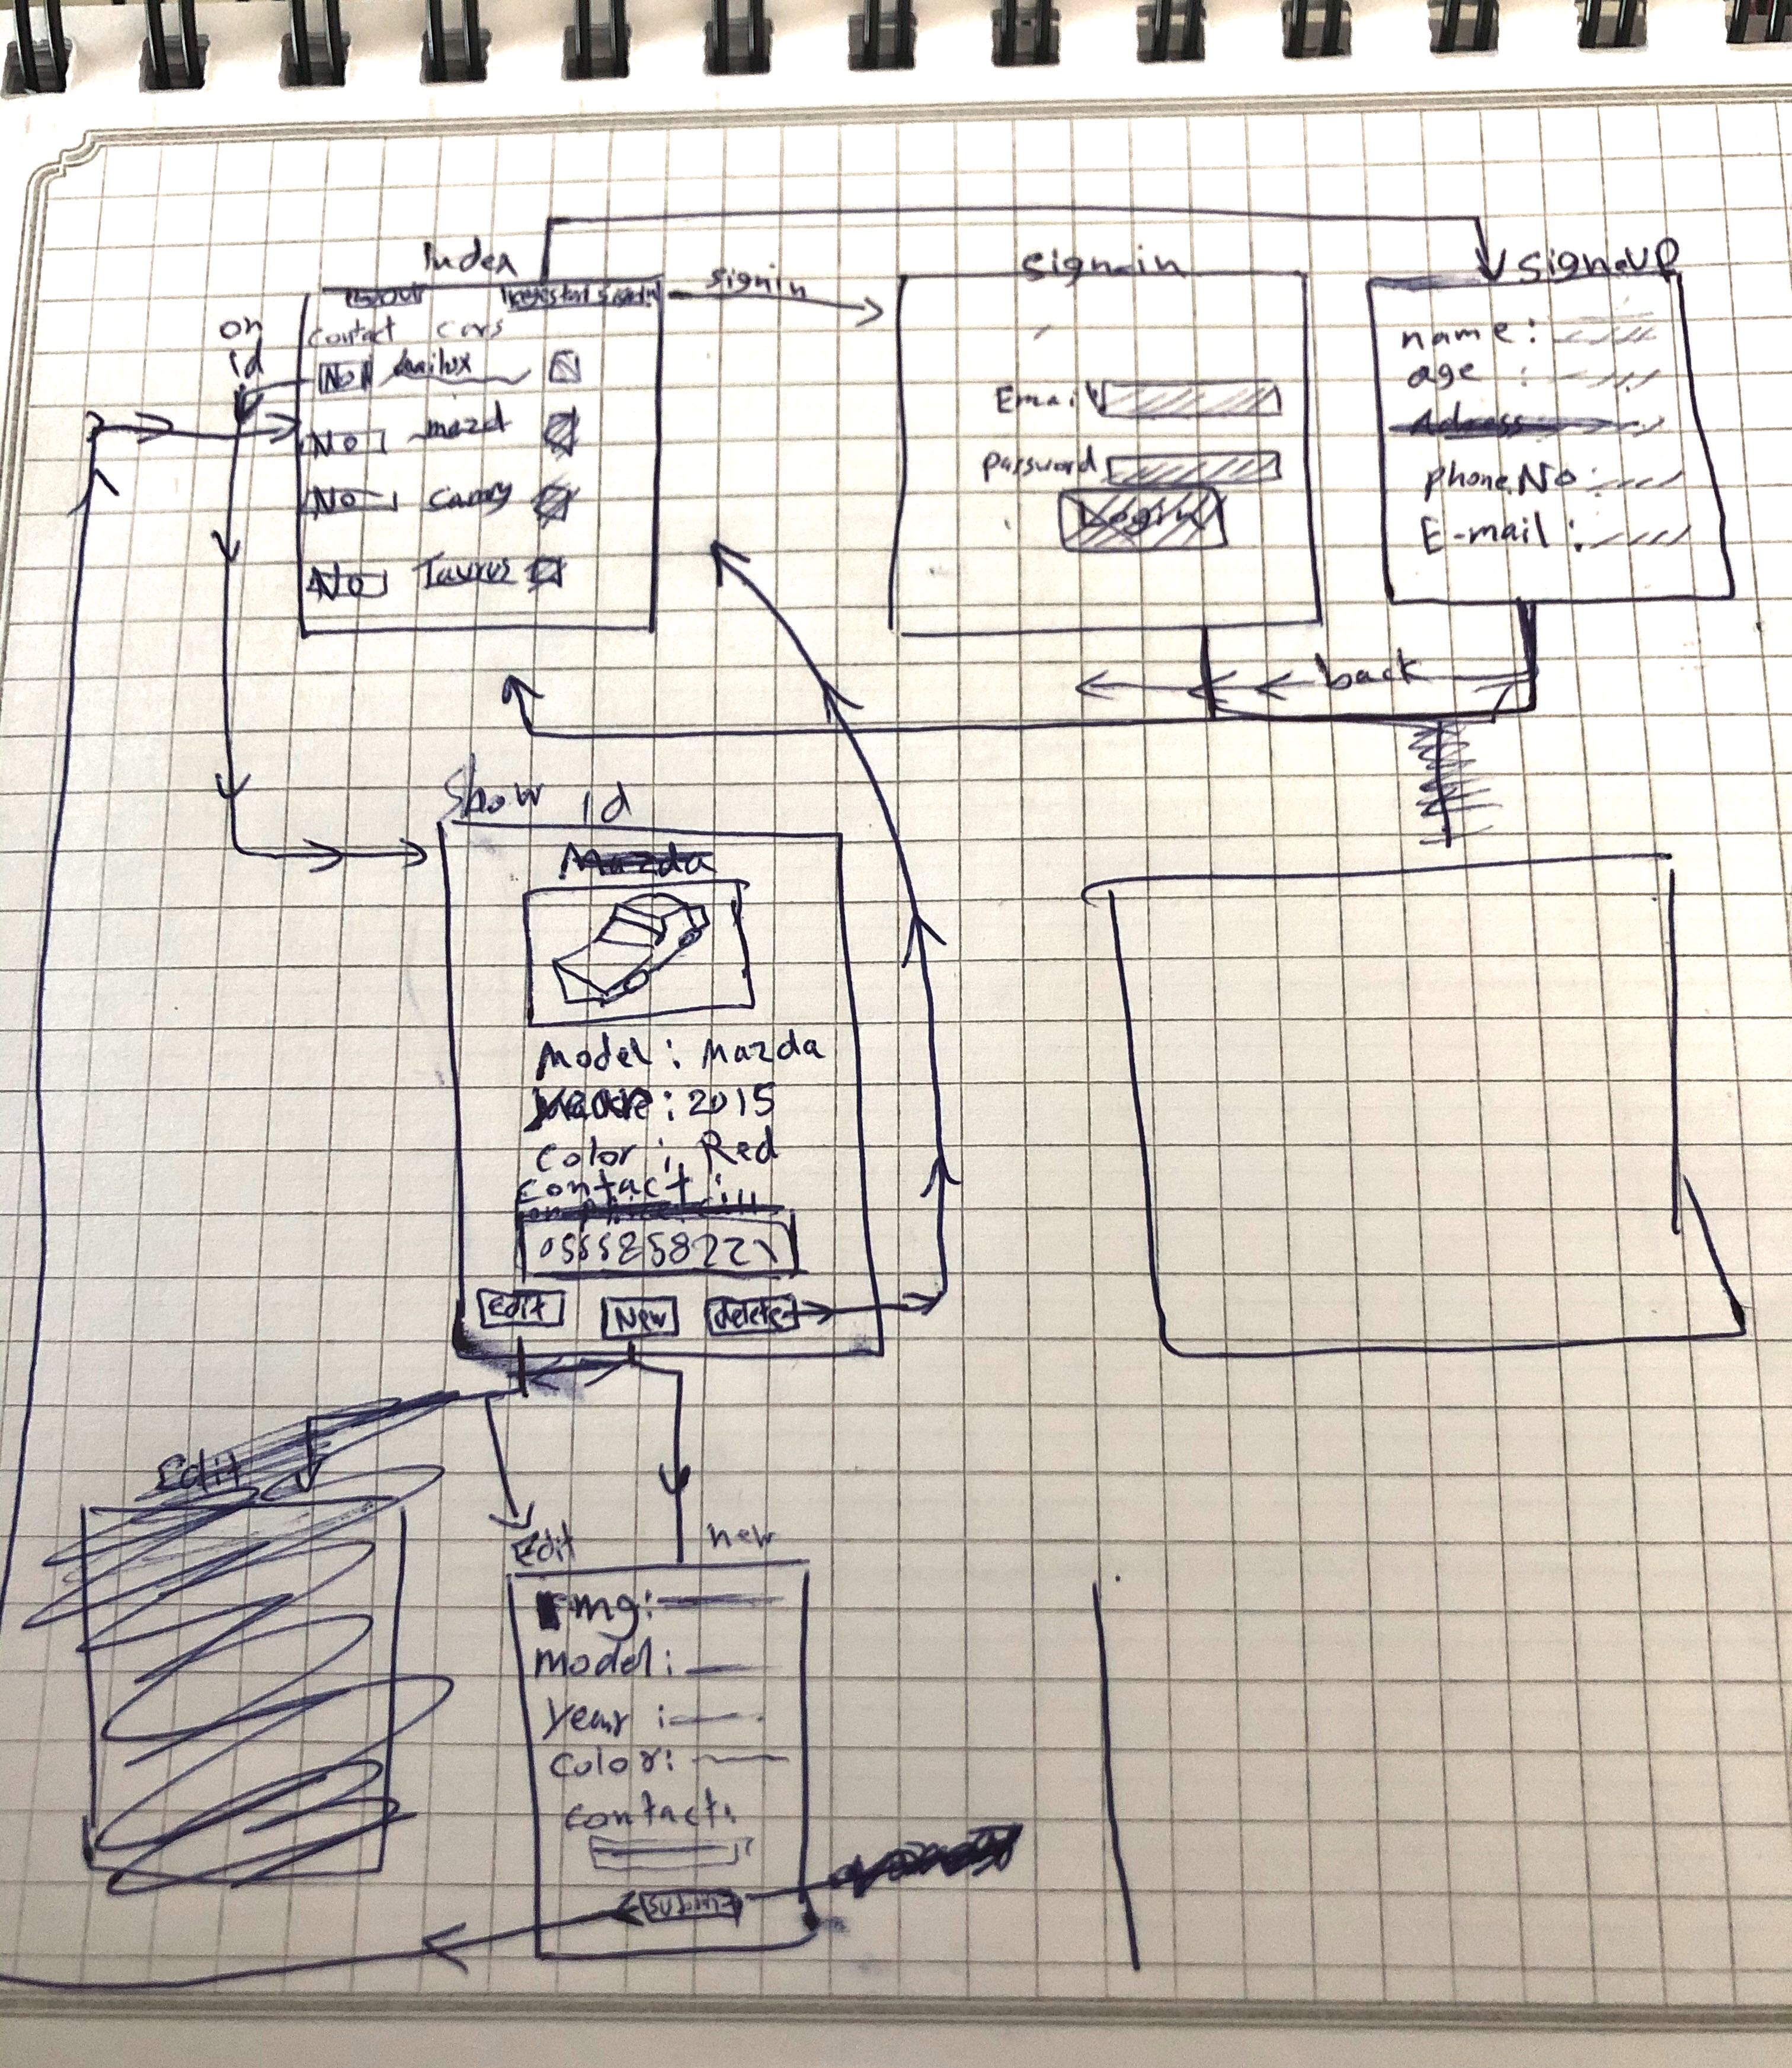 Index
signin
sign-in
sign-UP
on
id
Contact Cars
No
No mazd
No Camry
No Taurus
Email
Password
Login
name:
age :
Adress
phone.No:
E-mail :
back
Show id
Mazda
Model: Mazda
: 2015
color: Red
contact:
Edit New delete
Edit
Edit new
Img:
model:
year :
color:
contact:
submit